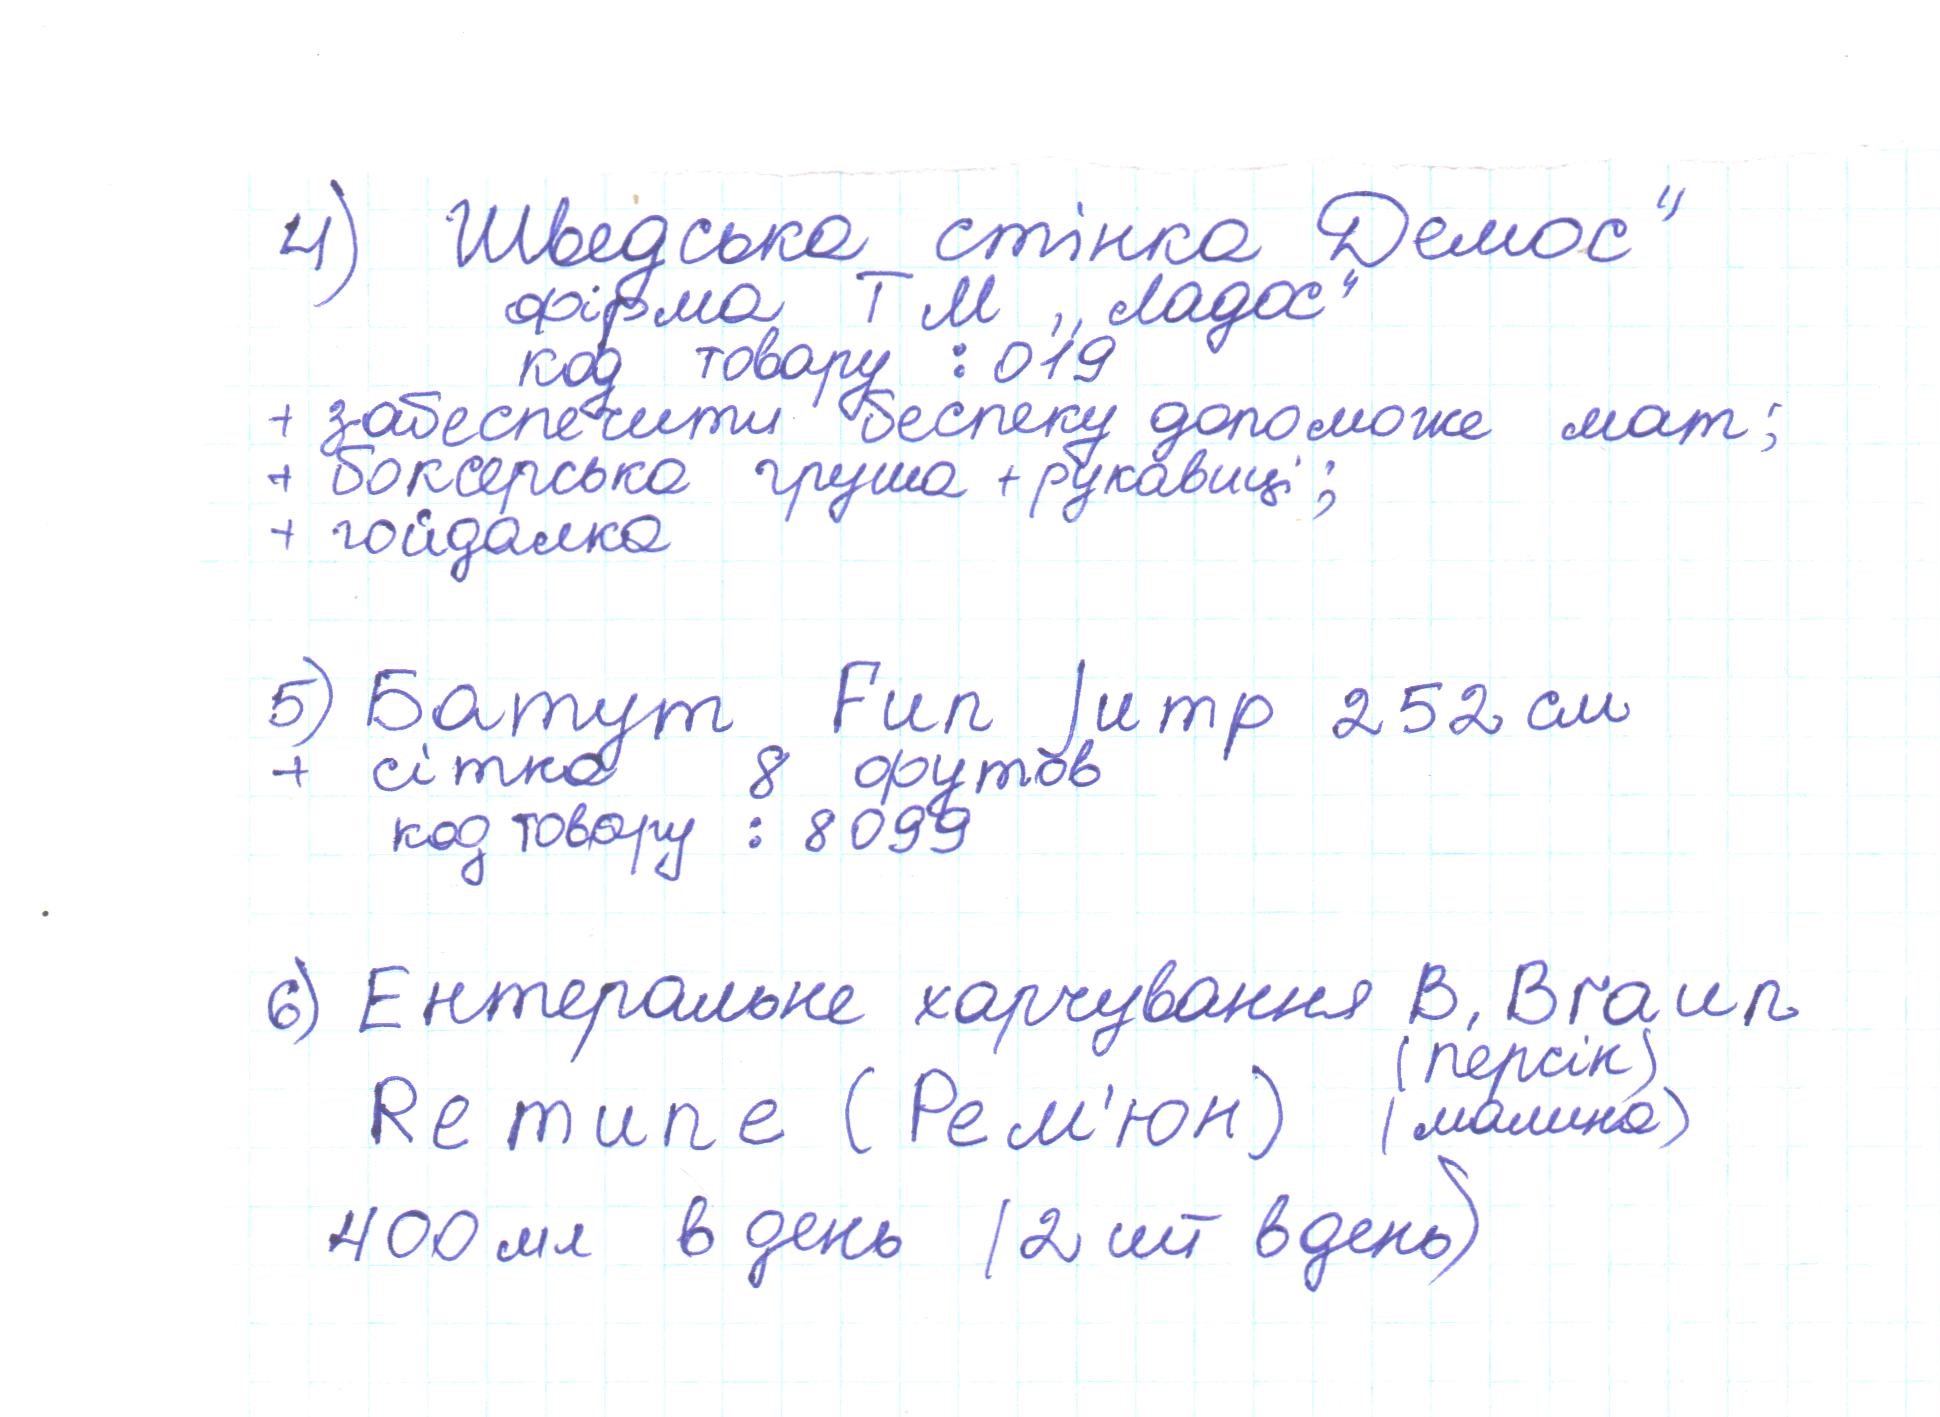 4) Шведська стінка Демос"
фірма ТМ „Ладос"
код товару : 019
+ забеспечити беспеку допоможе мат;
+ боксерська груша + рукавиці;
+ гойдалка
5) Батут Fun Jump 252 см
+ сітка 8 футов
код товару : 8099
6) Ентеральне харчування B. Braun
(персік)
Remune (Рем'юн) (малина)
400 мл в день (2 шт в день)